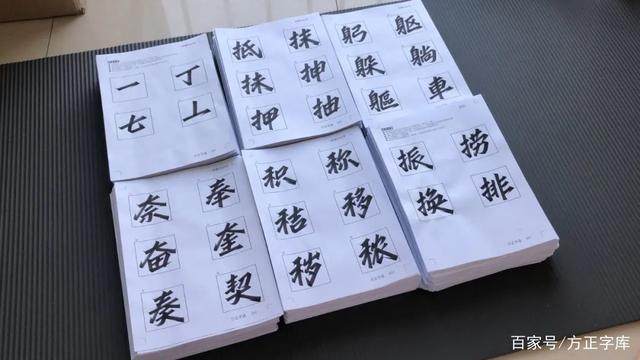 一 丁
七 丄
抵 抹
抺 抻
押 抽
躬 躯
躲 躺
躯 車
奈 奉
奋 奎
奏 契
积 称
秸 移
秽 秾
振 捞
换 排
百家号/方正字库